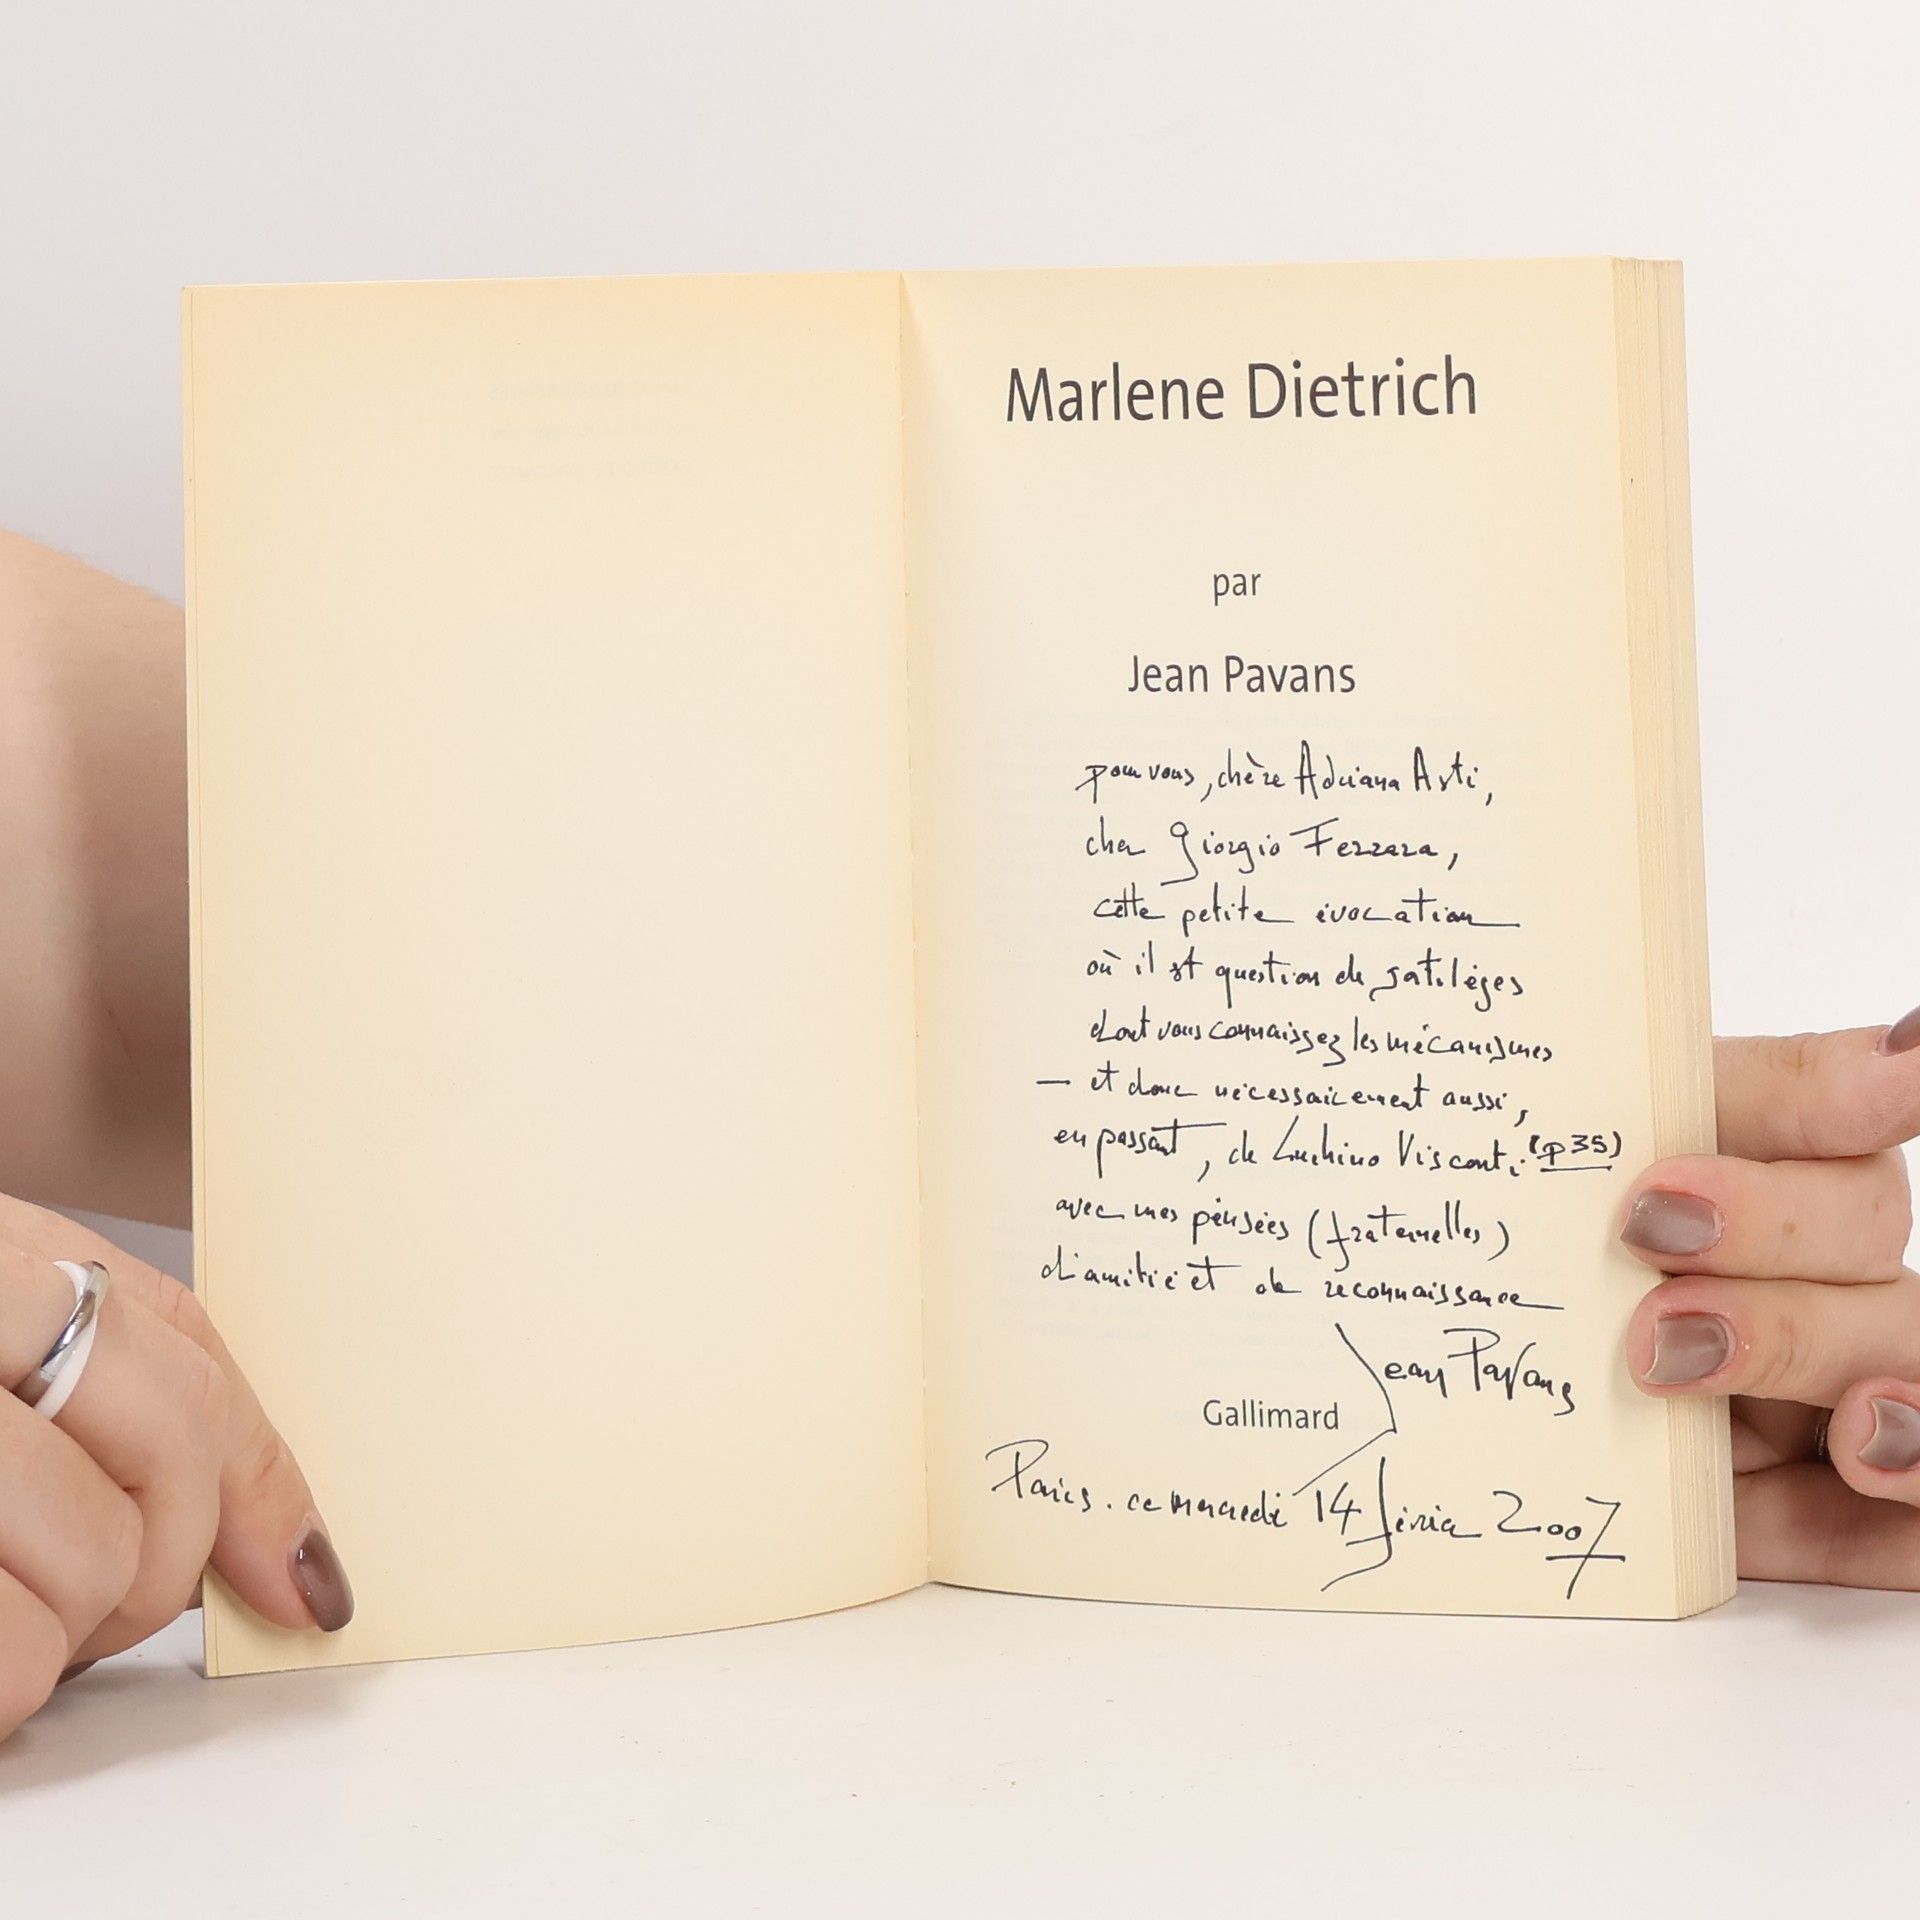 Marlene Dietrich
par
Jean Pavans
pour vous, chère Adriana Asti,
cher Giorgio Ferrara,
cette petite évocation
où il est question de sortilèges
dont vous connaissez les mécanismes
— et donc nécessairement aussi,
en passant, de Luchino Visconti (p 35)
avec mes pensées (fraternelles)
d'amitié et de reconnaissance
Jean Pavans
Gallimard
Paris. ce mercredi 14 février 2007